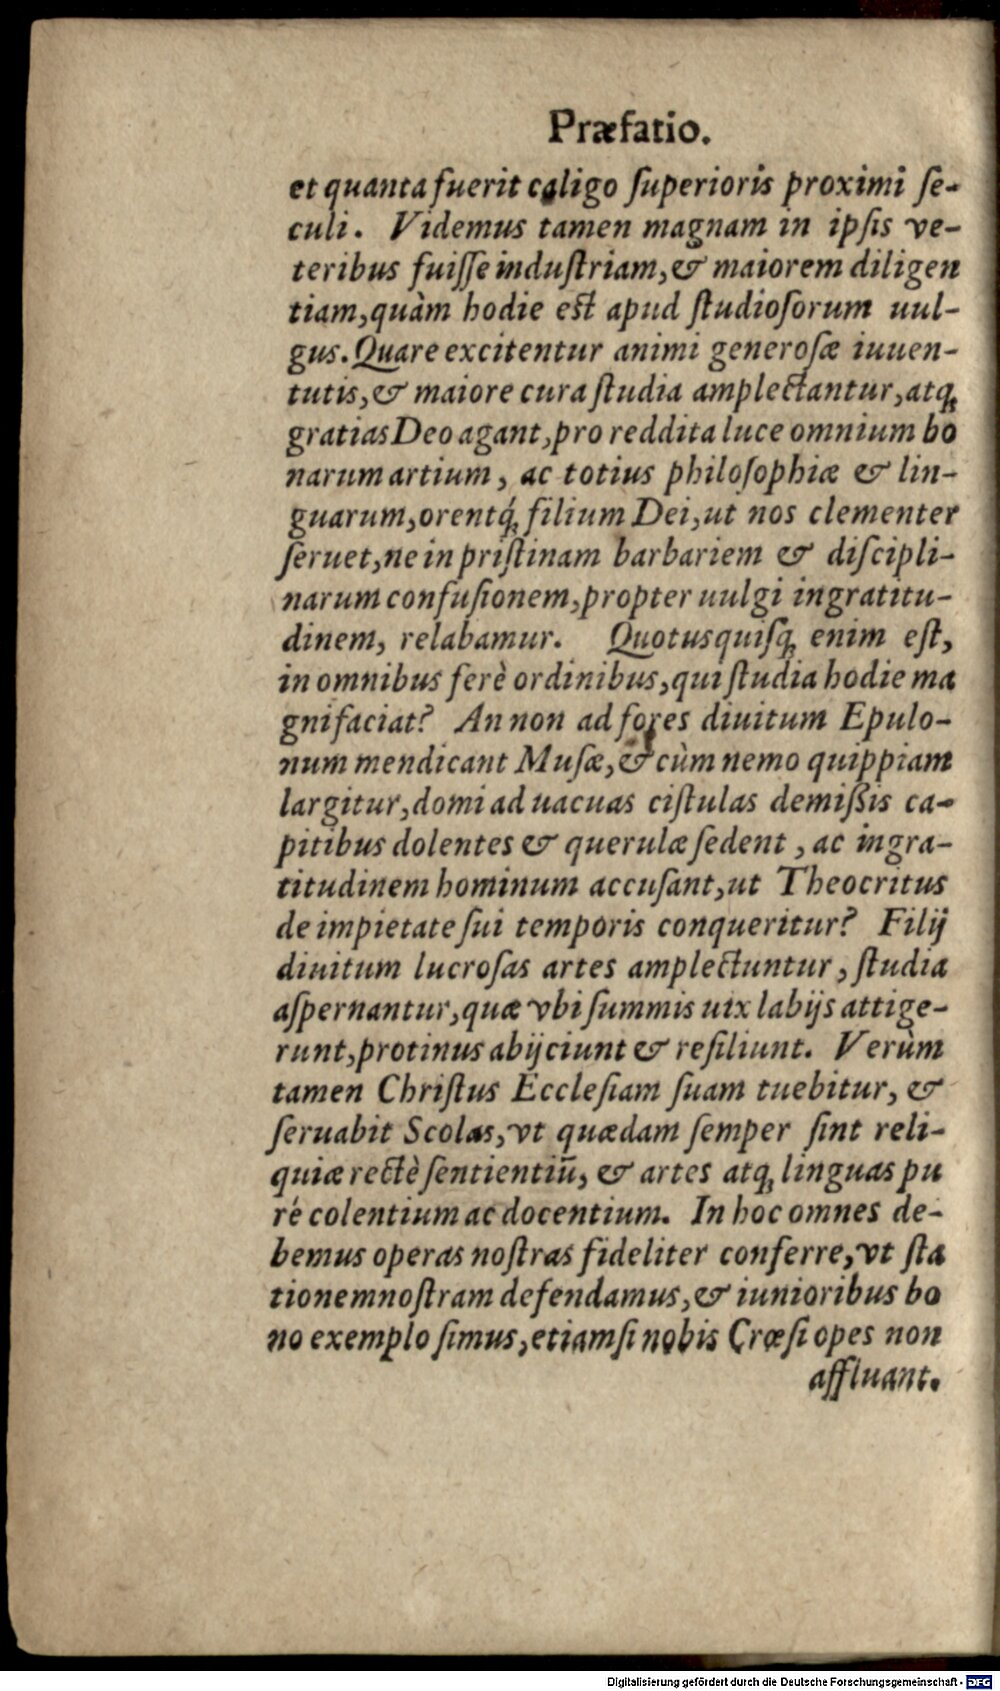 Præfatio.
et quanta fuerit caligo ſuperioris proximi ſe-
culi. Videmus tamen magnam in ipſis ve-
teribus fuiſſe induſtriam, & maiorem diligen
tiam, quàm hodie est apud ſtudioſorum uul-
gus. Quare excitentur animi generoſæ iuuen-
tutis, & maiore cura ſtudia amplectantur, atq́;
gratias Deo agant, pro reddita luce omnium bo
narum artium, ac totius philoſophiæ & lin-
guarum, orentq́; filium Dei, ut nos clementer
ſeruet, ne in priſtinam barbariem & diſcipli-
narum confuſionem, propter uulgi ingratitu-
dinem, relabamur. Quotusquiſq; enim eſt,
in omnibus ferè ordinibus, qui ſtudia hodie ma
gnifaciat? An non ad fores diuitum Epulo-
num mendicant Muſæ, & cùm nemo quippiam
largitur, domi ad uacuas ciſtulas demißis ca-
pitibus dolentes & querulæ ſedent, ac ingra-
titudinem hominum accuſant, ut Theocritus
de impietate ſui temporis conqueritur? Filij
diuitum lucroſas artes amplectuntur, ſtudia
aſpernantur, quæ vbi ſummis uix labijs attige-
runt, protinus abijciunt & reſiliunt. Verùm
tamen Chriſtus Eccleſiam ſuam tuebitur, &
ſeruabit Scolas, vt quædam ſemper ſint reli-
quiæ rectè ſentientiū, & artes atq; linguas pu
rè colentium ac docentium. In hoc omnes de-
bemus operas noſtras fideliter conferre, vt ſta
tionem noſtram defendamus, & iunioribus bo
no exemplo ſimus, etiamſi nobis Crœſi opes non
affluant.
Digitalisierung gefördert durch die Deutsche Forschungsgemeinschaft - DFG